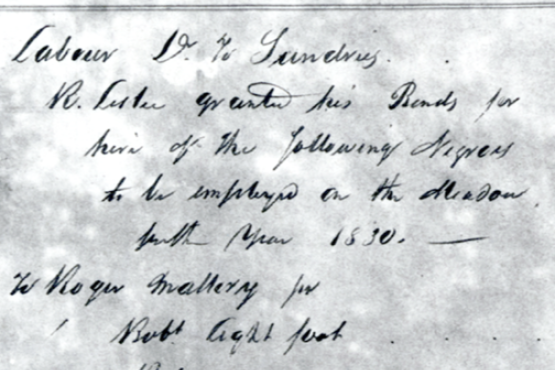 Labour Dr. To Sundries.
R. Leslie granted his Bonds for
hire of the following Negroes
to be employed on the Meadow
Year 1830. —
To Roger Mallory for
1 Robt Lightfoot